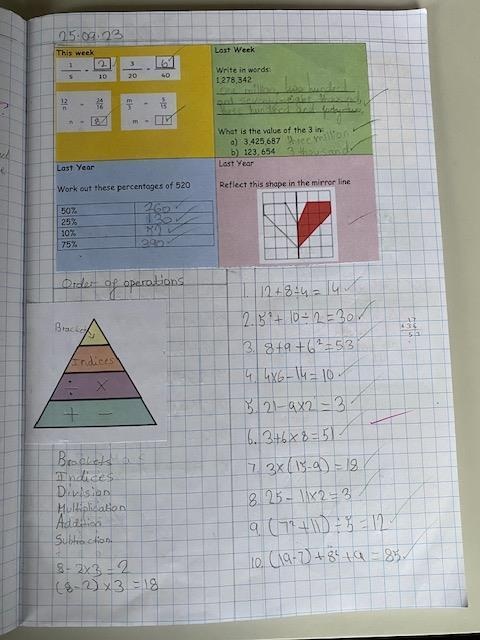 25.09.23
This week
1/5 = 2/10 3/20 = 6/40
12/n = 24/16 m/3 = 5/15
n = 8 m = 1
Last Week
Write in words:
1,278,342
one million two hundred
and seventy eight thousand
three hundred and forty two
What is the value of the 3 in:
a) 3,425,687 three million
b) 123,654 3 thousand
Last Year
Work out these percentages of 520
50% 260
25% 130
10%
75% 390
Last Year
Reflect this shape in the mirror line
Order of operations
Brackets
Indices
÷ ×
+ −
Brackets
Indices
Division
Multiplication
Addition
Subtraction
8-2×3=2
(8-2)×3=18
1. 12+8÷4=14
2. 5²+10÷2=30
3. 8+9+6²=53
17
+36
53
4. 4×6-14=10
5. 21-9×2=3
6. 3+6×8=51
7. 3×(15-9)=18
8. 25-11×2=3
9. (7²+11)÷5=12
10. (19-7)+8²+9=85